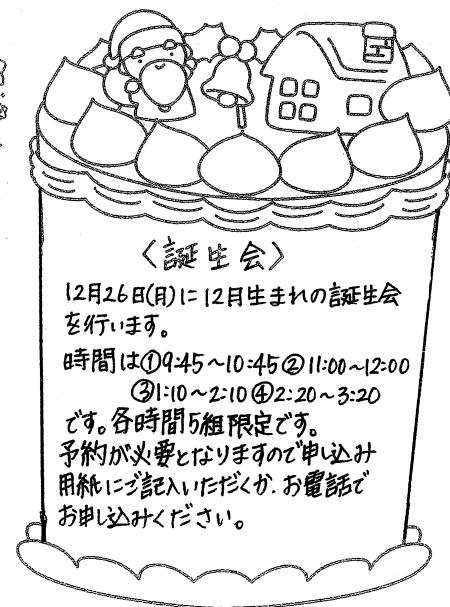 〈誕生会〉
12月26日(月)に12月生まれの誕生会
を行います。
時間は①9:45〜10:45②11:00〜12:00
③1:10〜2:10④2:20〜3:20
です。各時間5組限定です。
予約が必要となりますので申し込み
用紙にご記入いただくか、お電話で
お申し込みください。